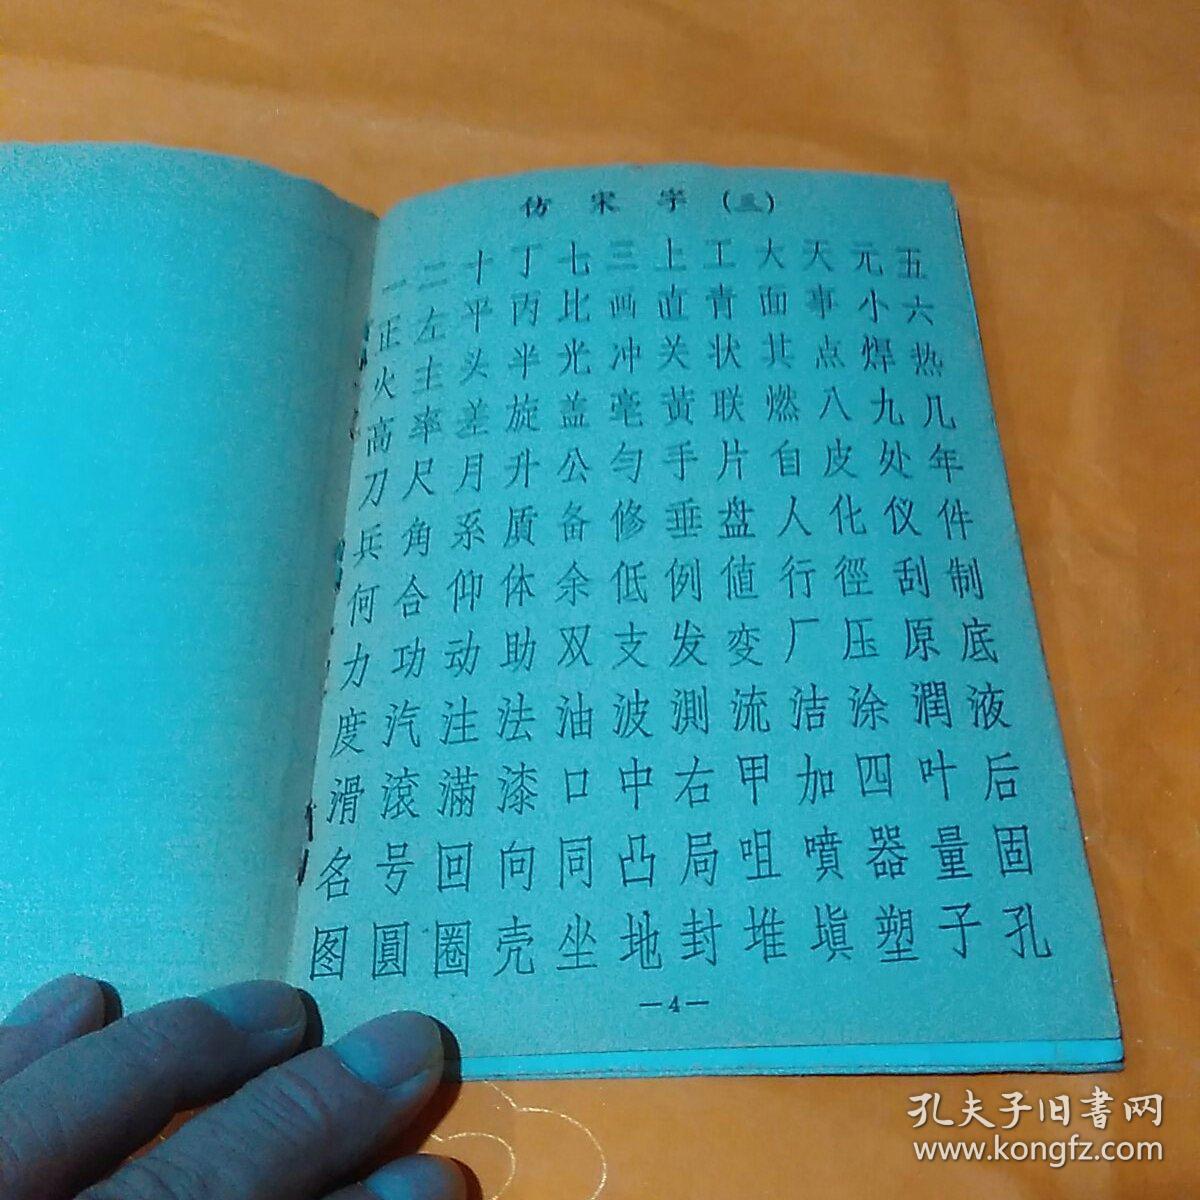 仿宋字(三)
一二十丁七三上工大天元五
正左平丙比画直青面事小六
火主头半光冲关状其点焊热
高率差旋盖毫黄联燃八九几
刀尺月升公匀手片自皮处年
兵角系质备修垂盘人化仪件
何合仰体余低例値行徑刮制
力功动助双支发变厂压原底
度汽注法油波測流洁涂潤液
滑滾滿漆口中右甲加四叶后
名号回向同凸局咀噴器量固
图圓圈壳坐地封堆塡塑子孔
—4—
孔夫子旧書网
www.kongfz.com